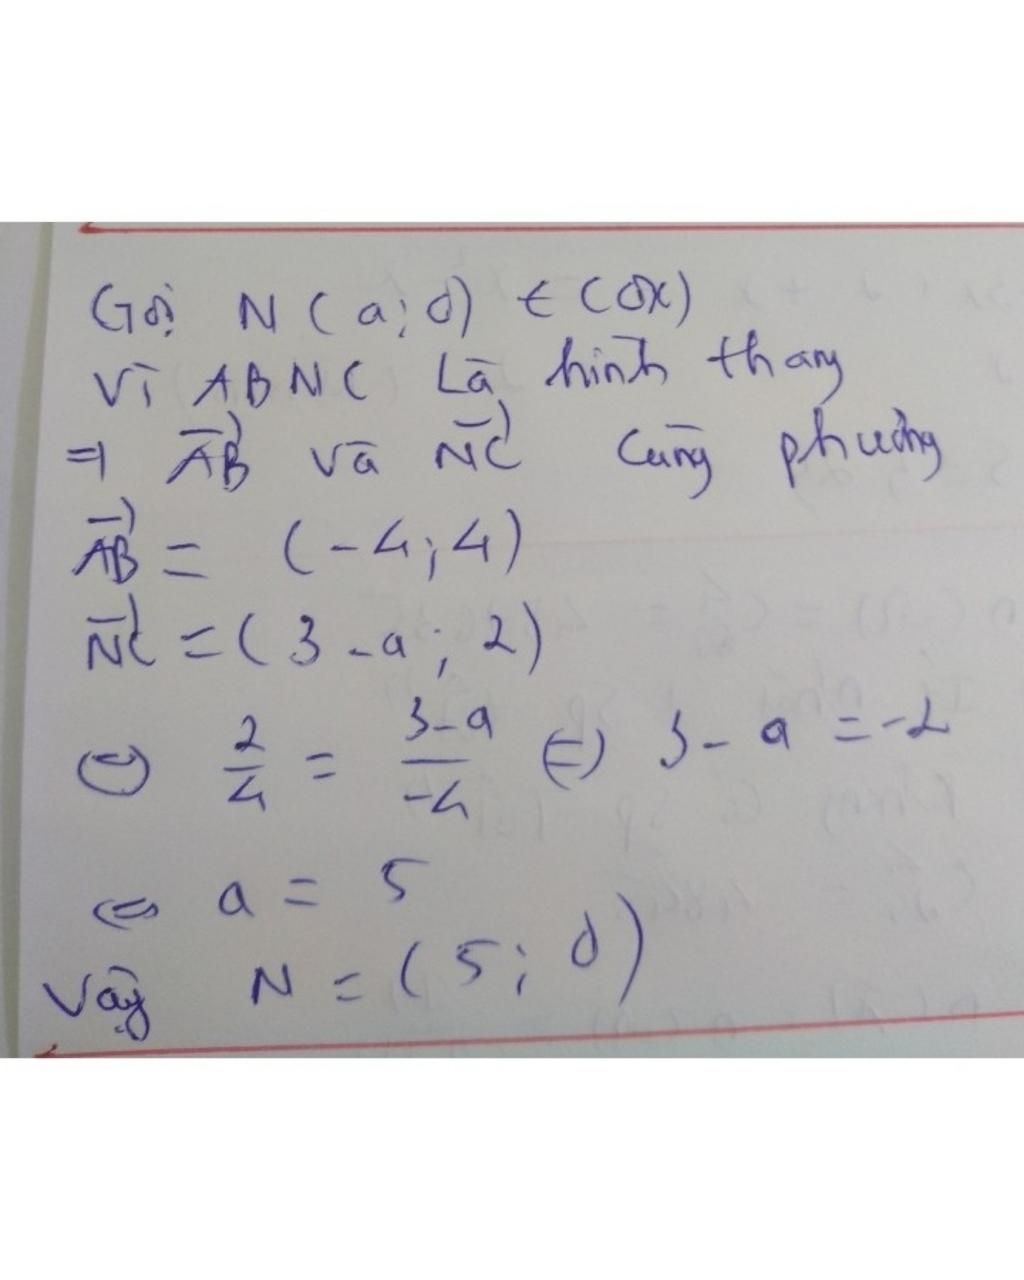 Gọi N(a;0) ∈ (Ox)
Vì ABNC Là hình thang
⇒ \overrightarrow{AB} và \overrightarrow{NC} cùng phương
\overrightarrow{AB} = (-4;4)
\overrightarrow{NC} = (3-a;2)
⇔ \frac{2}{4} = \frac{3-a}{-4} ⇔ 3-a = -2
⇔ a = 5
Vậy N = (5;0)